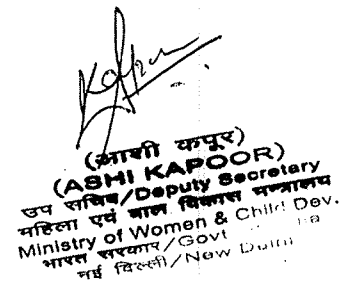 (आशी कपूर)
(ASHI KAPOOR)
उप सचिव/Deputy Secretary
महिला एवं बाल विकास मन्त्रालय
Ministry of Women & Child Dev.
भारत सरकार/Govt
नई दिल्ली/New Delhi